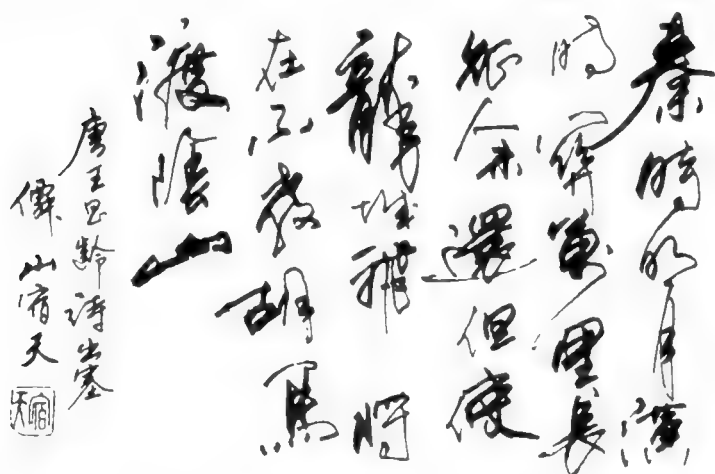 秦時明月漢
時關萬里長
征人未還但使
龍城飛將
在不教胡馬
渡陰山
唐王昌齡詩出塞
山宿天
宿天